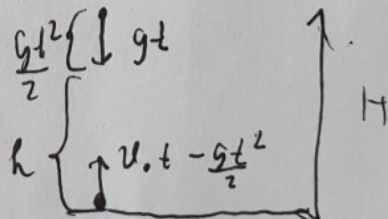 gt²/2 { gt
H
h { v. t - gt²/2